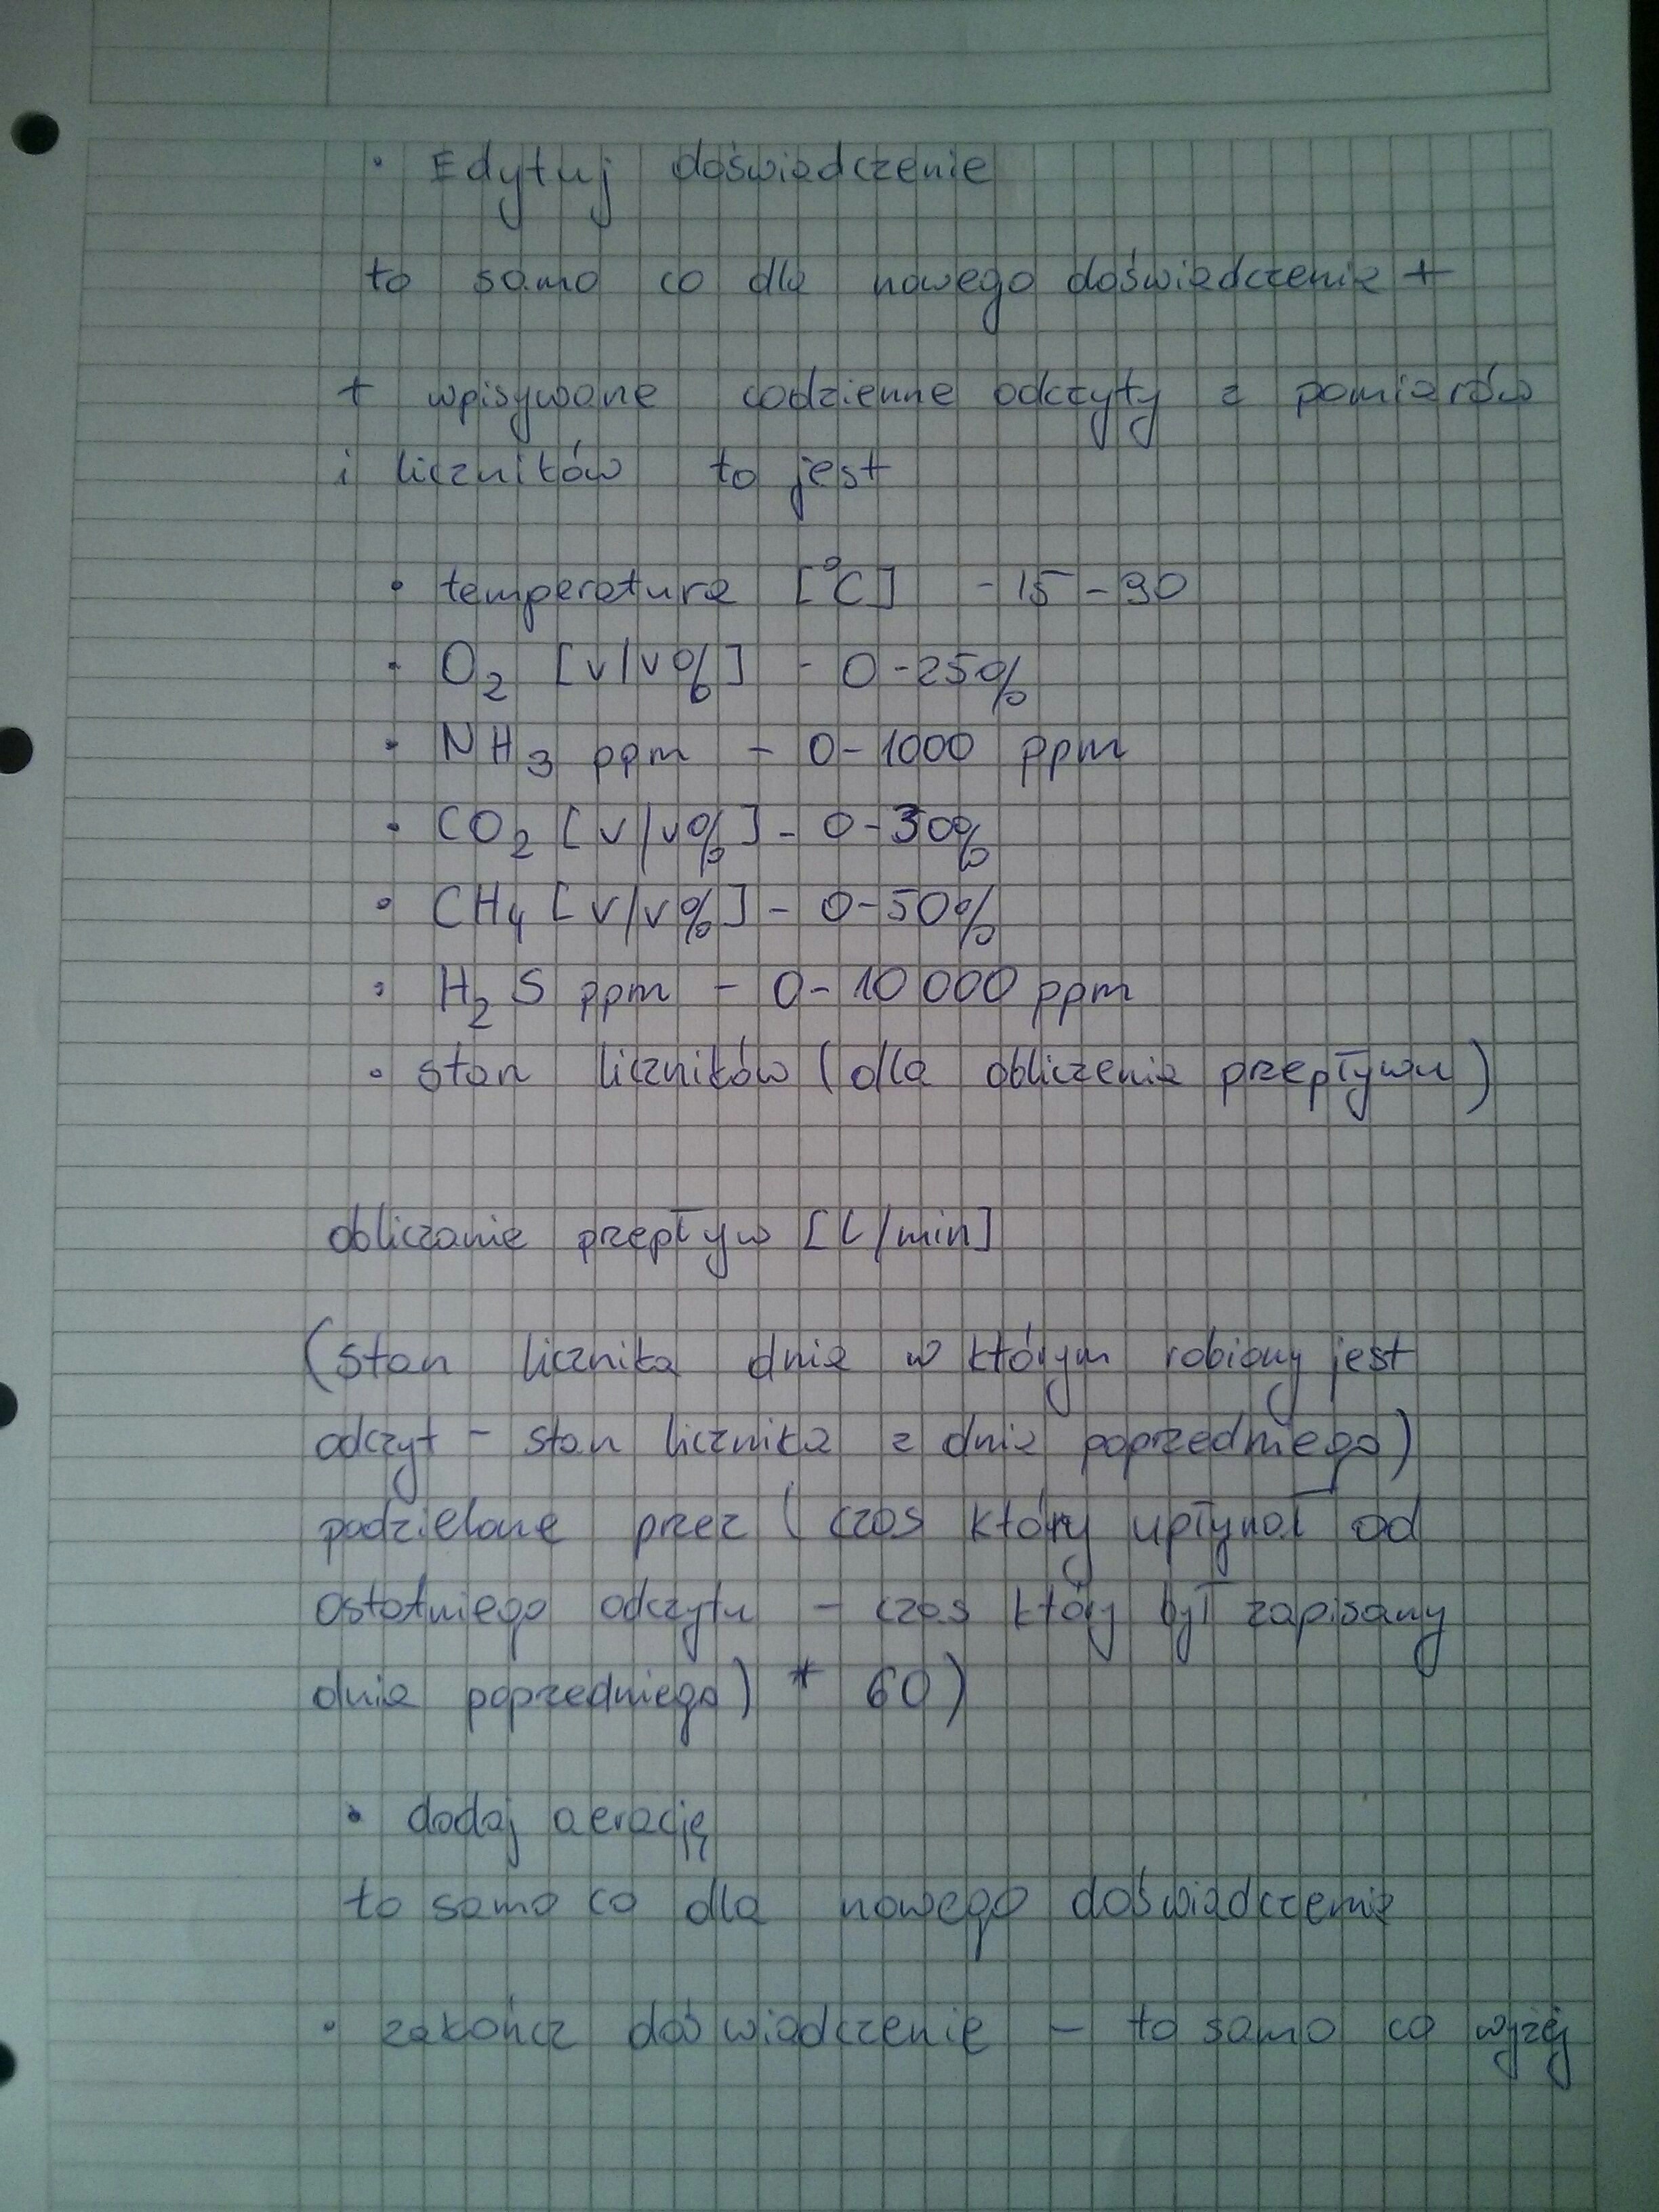 • Edytuj doświadczenie
to samo co dla nowego doświadczenia +
+ wpisywane codzienne odczyty z pomiarów
i liczników to jest
• temperatura [°C] - 15 - 90
• O2 [v/v%] - 0-25%
• NH3 ppm - 0-1000 ppm
• CO2 [v/v%] - 0-30%
• CH4 [v/v%] - 0-50%
• H2S ppm - 0-10 000 ppm
• stan liczników (dla obliczenia przepływu)
obliczanie przepływ [l/min]
(stan licznika dnia w którym robiony jest
odczyt - stan licznika z dnia poprzedniego)
podzielone przez (czas który upłynął od
ostatniego odczytu - czas który był zapisany
dnia poprzedniego) * 60)
• dodaj aerację
to samo co dla nowego doświadczenia
• zakończ doświadczenie - to samo co wyżej